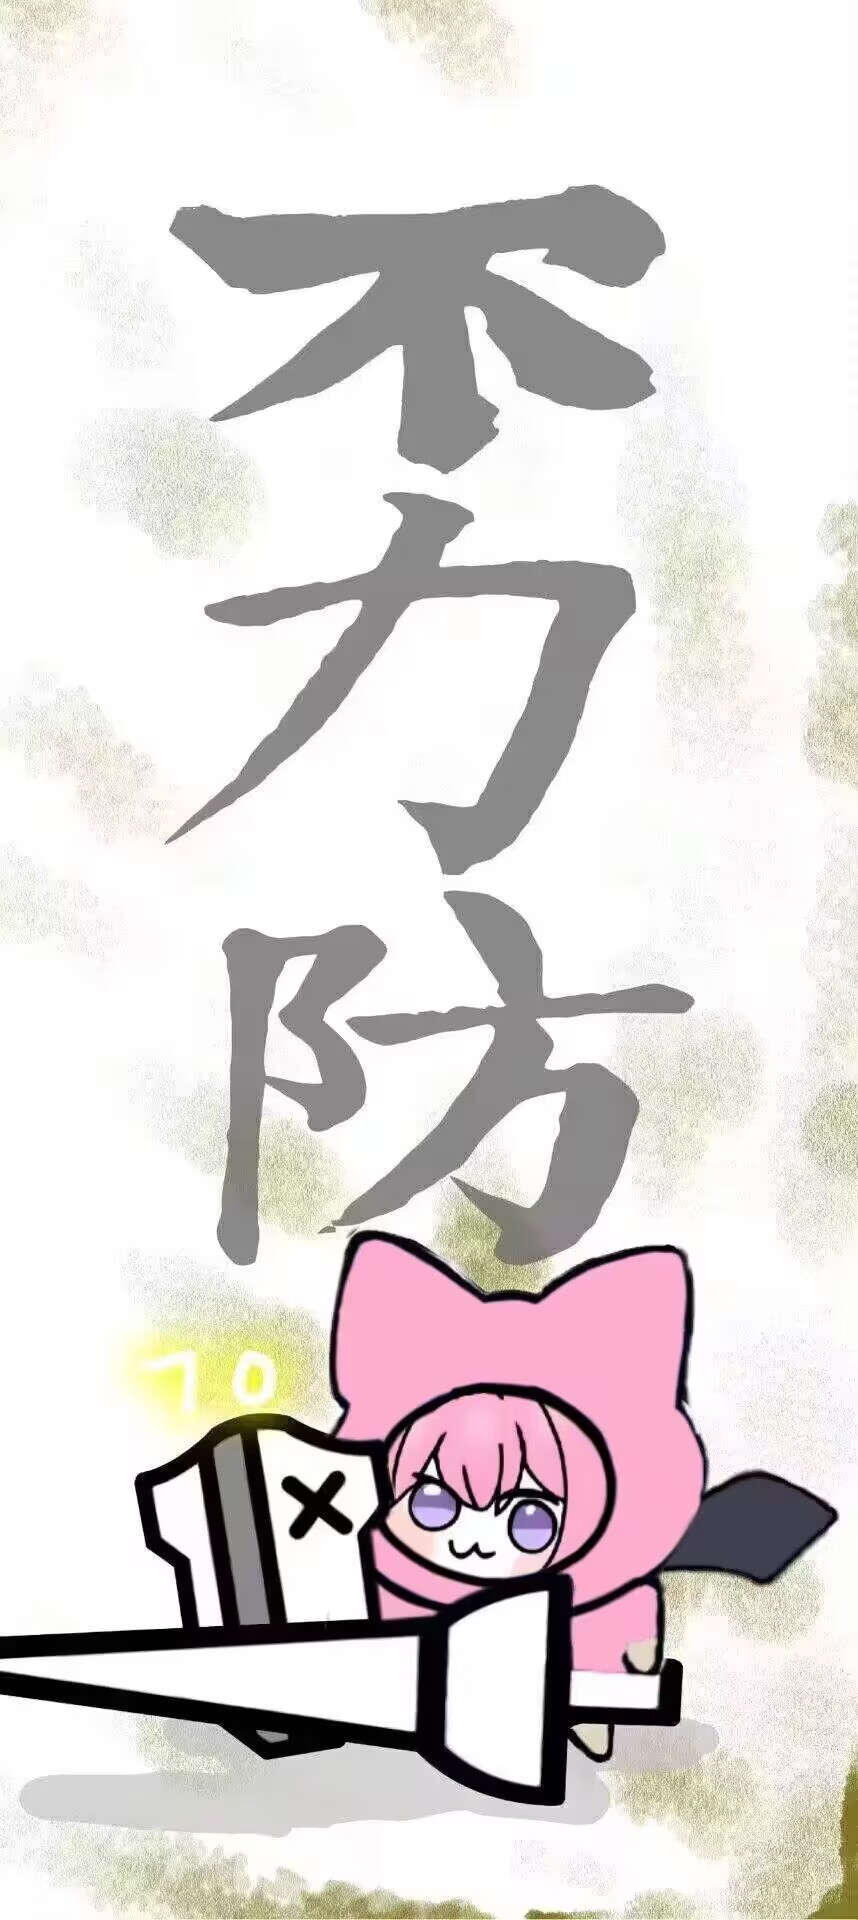 不力防
10